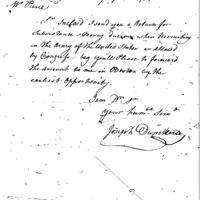 Mr Pierce
Inclosed I send you a Return for
Subsistance & Money due me when Recruiting
in the Army of the United States as allowed
by Congress. beg you'll Please to forward
the Amount to me in Boston by the
earliest Opportunity.
I am Dr Sr
Your humle Servt
Joseph